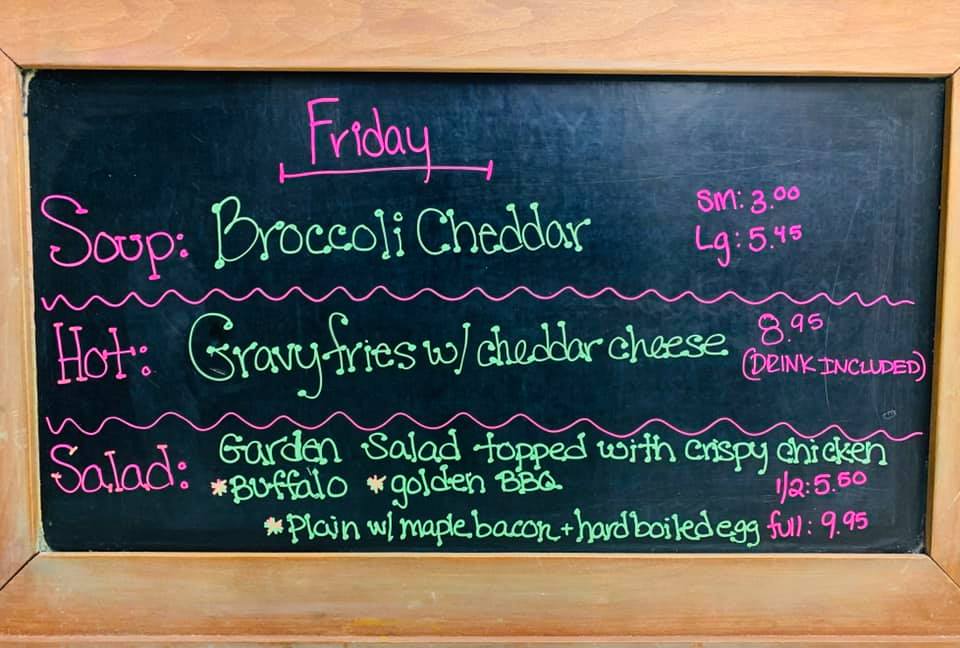 Friday
Soup: Broccoli Cheddar
Sm: 3.00
Lg: 5.45
Hot: Gravy fries w/ cheddar cheese
8.95
(DRINK INCLUDED)
Salad: Garden Salad topped with crispy chicken
*Buffalo *golden BBQ 1/2: 5.50
*Plain w/ maple bacon + hard boiled egg full: 9.95